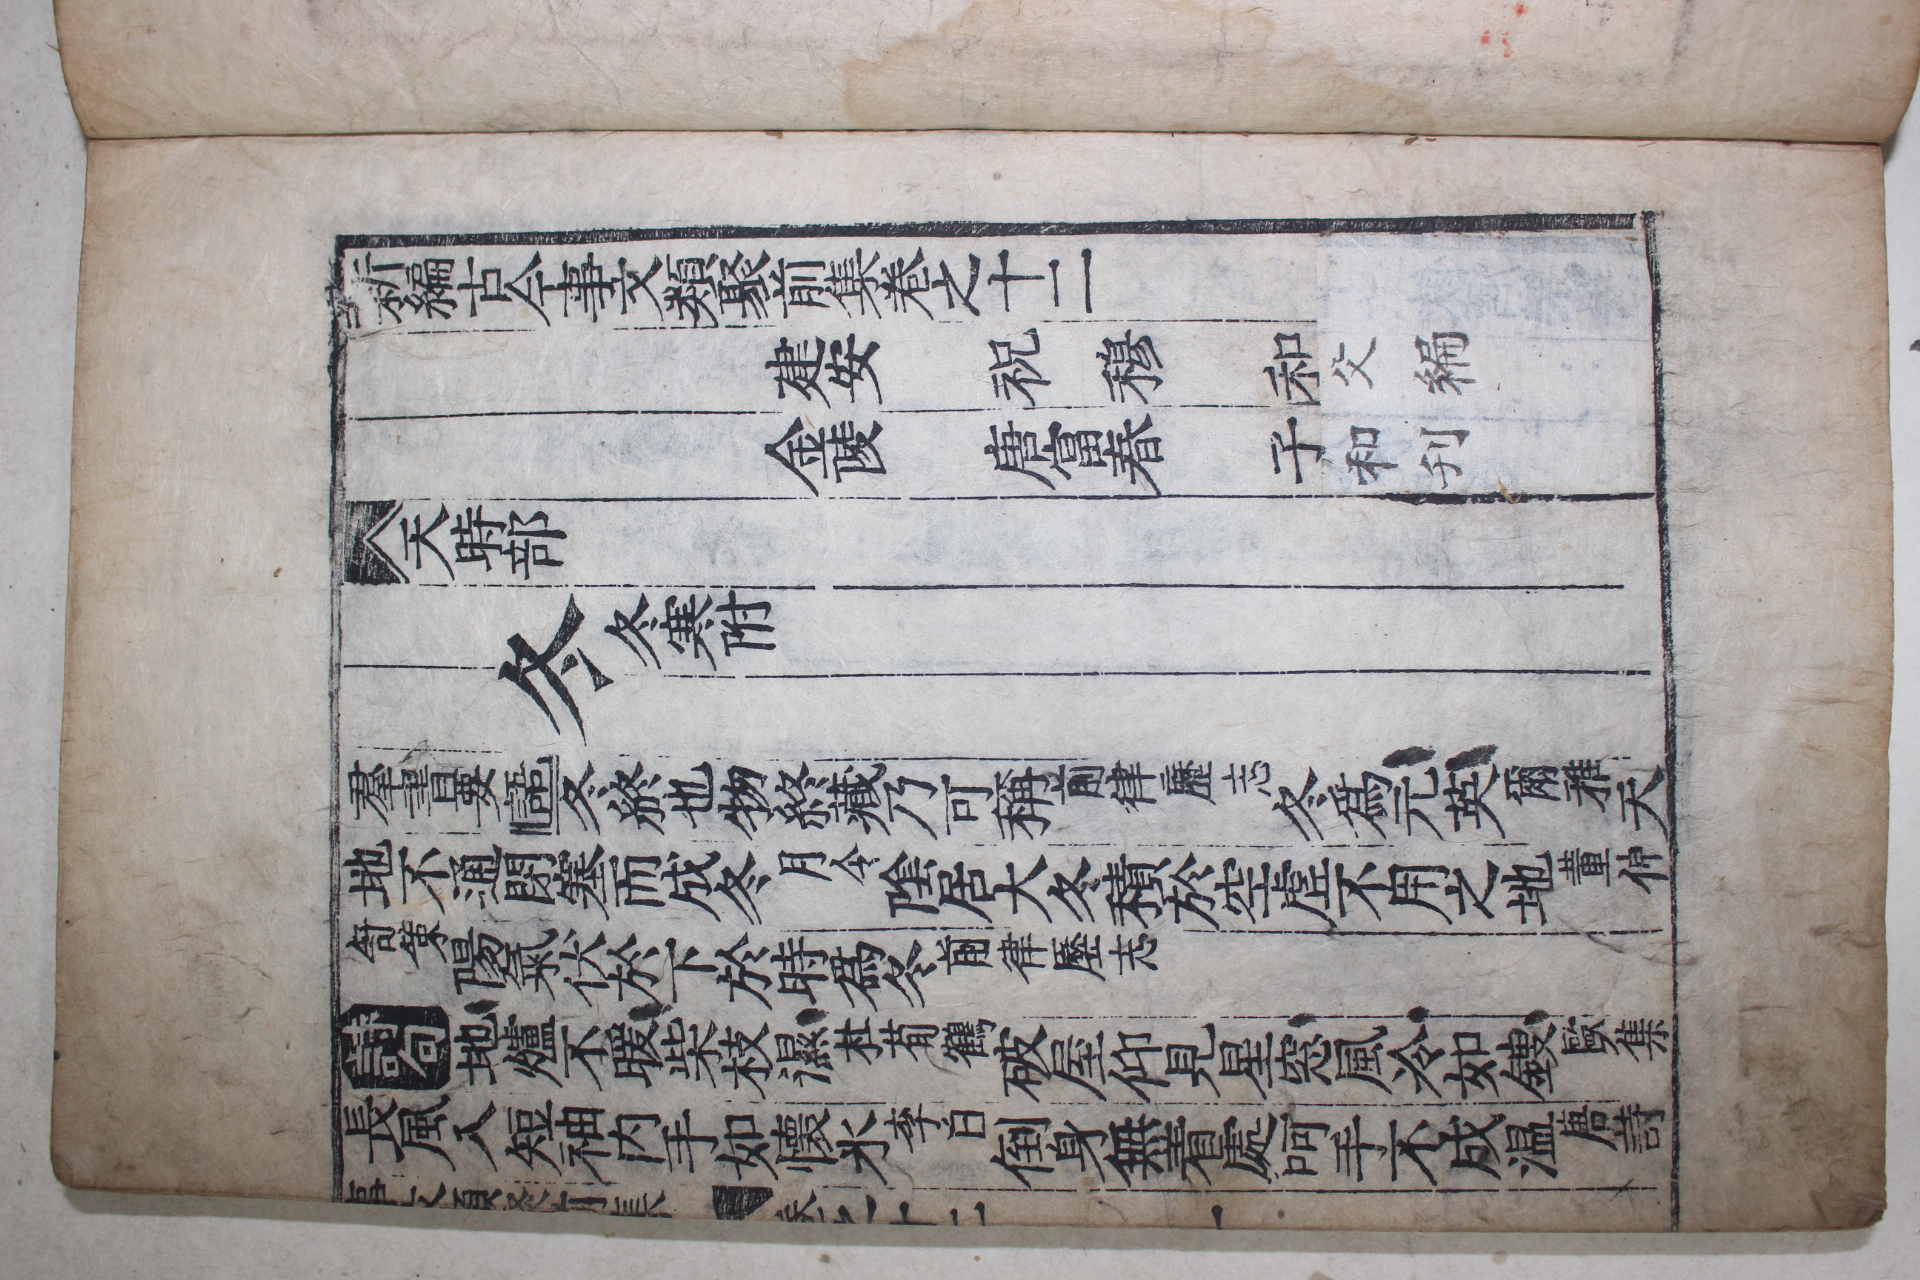 新編古今事文類聚前集卷之十二
建安 祝 穆 和父 編
金陵 唐富春 子和 刋
天時部
冬 冬寒附
羣書要語 冬終也物終藏乃可稱 前律歷志 冬爲元英 爾雅 天
地不通閉塞而成冬 月令 陰居大冬積於空虛不用之地 董仲
舒策 陽氣伏於下於時爲冬 前律歷志
詩句 地爐不暖柴枝濕 杜荀鶴 破屋仰見星窓風冷如鏤 歐集
長風入短袖内手如懷氷 李白 倒身無着處呵手不成温 唐詩
事文類聚前集 卷之十二 一